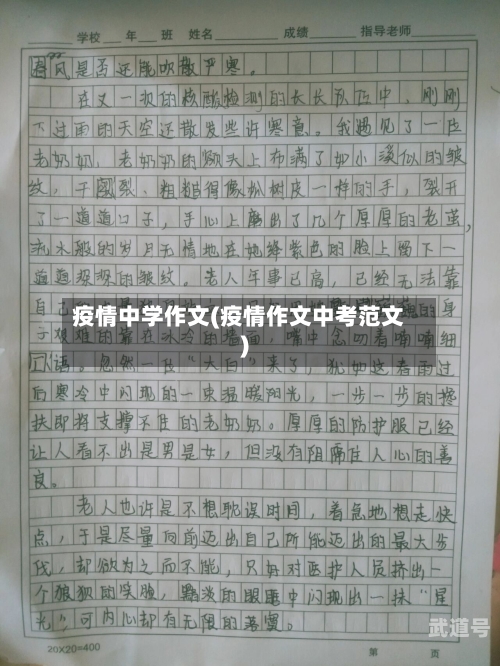 学校 年 班 姓名 成绩 指导老师
春风是否还能吹散严寒。
在又一次的核酸检测的长长队伍中,刚刚
下过雨的天空还散发些许寒意。我遇见了一位
老奶奶,老奶奶的额头上布满了如小溪似的皱
纹,干裂、粗糙得像松树皮一样的手,裂开
了一道道口子,手心上磨出了几个厚厚的老茧,
流水般的岁月无情地在她绛紫色的脸上留下一
道道深深的皱纹。老人年事已高,已经无法靠
自己的 身
疫情中学作文(疫情作文中考范文
)
子艰难的靠在冰冷的墙 嘴中 喃喃细
语。忽然一位“大白”来了,犹如这春雨过
后寒冷中闪现的一束温暖阳光,一步一步的搀
扶即将支撑不住的老奶奶。厚厚的防护服已经
让人看不出是男是女,但没有阻隔住人心的善
良。
老人也许是不想耽误时间,着急地想走快
点,于是尽量向前迈出自己所能迈出的最大步
伐,却欲为之而不能,只好对医护人员挤出一
个狼狈的笑脸,黯淡的眼眶中闪现出一抹“星
光”可内心却有无限的落寞。
20×20=400
第 页
武道号